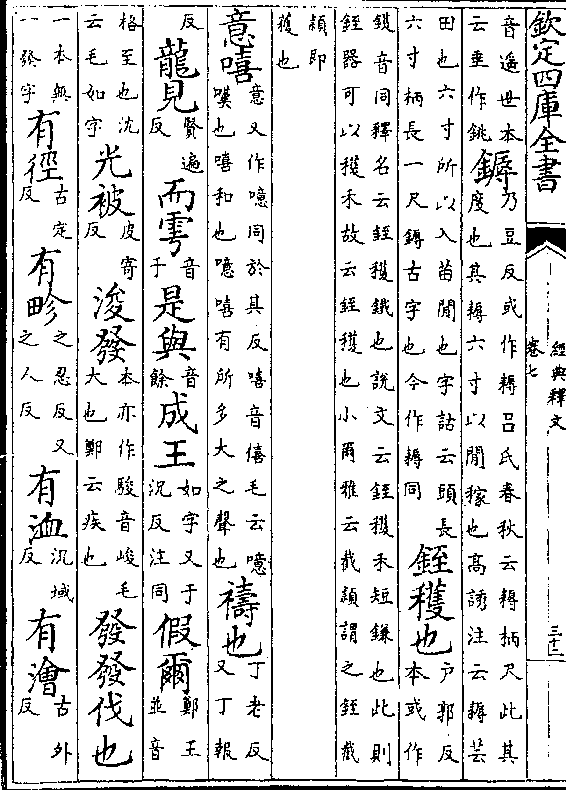 欽定四庫全書
經典釋文
卷七
三十二
音遥世本云垂作銚鎒乃豆反或作耨吕氏春秋云耨柄尺此其度也其耨六寸以間稼也高誘注云耨芸
田也六寸所以入苗間也字詁云頭長六寸柄長一尺鎒古字也今作耨同銍穫也户郭反本或作
鑊音同釋名云銍穫鐵也說文云銍穫禾短鎌也此則銍器可以穫禾故云銍穫也小爾雅云截穎謂之銍截
穎即穫也
意嘻意又作噫同於其反嘻音僖毛云噫嘆也嘻和也噫嘻有所多大之聲也禱也丁老反又丁報
反龍見賢遍反而雩音于是與音餘成王如字又于况反注同假爾鄭王並音
格至也沈云毛如字光被皮寄反浚發本亦作駿音峻毛大也鄭云疾也發發伐也
一本無一發字有徑古定反有畛之忍反又之人反有洫况域反有澮古外反